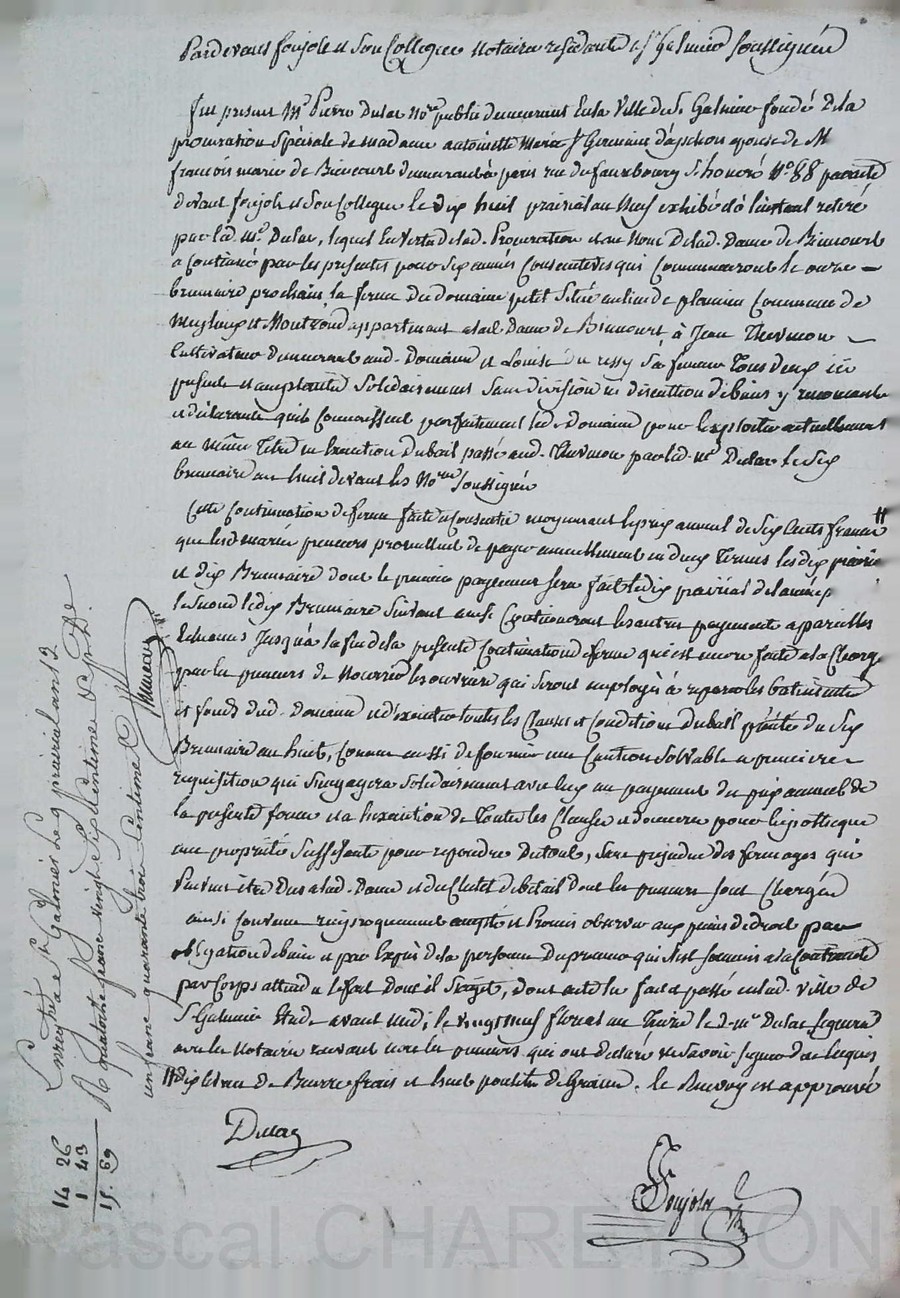 Pardevant foujols et son Collegue Notaires residents a St Galmier soussignés
fut present Me Pierre Dulac Nore public demeurant en la Ville de St Galmier fondé de la
procuration Spéciale de madame antoinette Marie St Germain d'apchon epouse de M
françois marie de Biencourt demeurant à paris rue du fauxbourg St honoré No 88 passée
devant foujols et son Collegue le dix huit prairial an neuf exhibé à l'instant retiré
par led. me Dulac, lequel en vertu de lad. Procuration et au Nom de lad. Dame de Biencourt
a Continué par les presentes pour six années Consecutives qui Commenceront le onze
brumaire prochain la ferme du domaine petit Situé au lieu de Commune de
et Montrond appartenant a lad Dame de Biencourt, à Jean Thevenon
Cultivateur demeurant aud. Domaine et Louise sa femme tous deux ici
presents et acceptants Solidairement sans division ni discution de biens y renonçants
et déclarants qu'ils Connoissent parfaitement led. domaine pour l'exploiter actuellement
au même titre en execution du bail passé aud. Thevenon par led. me Dulac le six
brumaire an huit devant les Nores soussignés
Cette Continuation de ferme faite et Consentie moyennant le prix annuel de six Cents francs //
que lesd. mariés preneurs promettent de payer annuellement en deux termes les dix prairial
et dix Brumaire dont le premier payement sera fait le dix prairial de l'année
le second le dix Brumaire suivant ainsi Continueront les autres payements a pareilles
Echeances Jusqu'à la fin de la presente Continuation de ferme qui est encore faite a la Charge
par les preneurs de Nourrir les ouvriers qui seront employés à reparer les batiments
et fonds dud. domaine et d'executer toutes les Clauses et Conditions du bail du six
Brumaire an huit, Comme aussi de fournir une Caution Solvable a premiere
requisition qui s'engagera solidairement avec eux au payement du prix annuel de
la presente ferme et a l'execution de toutes les Clauses et donnera pour hipotheque
une propriété suffisante pour repondre du tout, sans prejudice des fermages qui
peuvent être dus a lad. Dame et du Cheptel de bétail dont les preneurs sont Chargés
ainsi Convenu reciproquement accepté et Promis observer aux peines de droit par
obligation de biens et par Exprès de la personne du preneur qui s'est soumis a la Contrainte
par Corps attendu le fait dont il s'agit, dont acte fait et passé en lad. ville de
St Galmier Etude avant midi, le vingt neuf floreal an treize led. me Dulac signera
avec les Notaires non les preneurs qui ont declaré ne savoir signer de ce requis
// dix livres de Beurre frais et huit poulets de Grains. le Renvoy est approuvé
Dulac
Foujols
Enregistré a St Galmier Le 9 prairial an 13
R quatorze francs vingt six Centimes
un franc quarante trois Centimes
14 26
1 43
15. 69
Pascal CHAREYRON